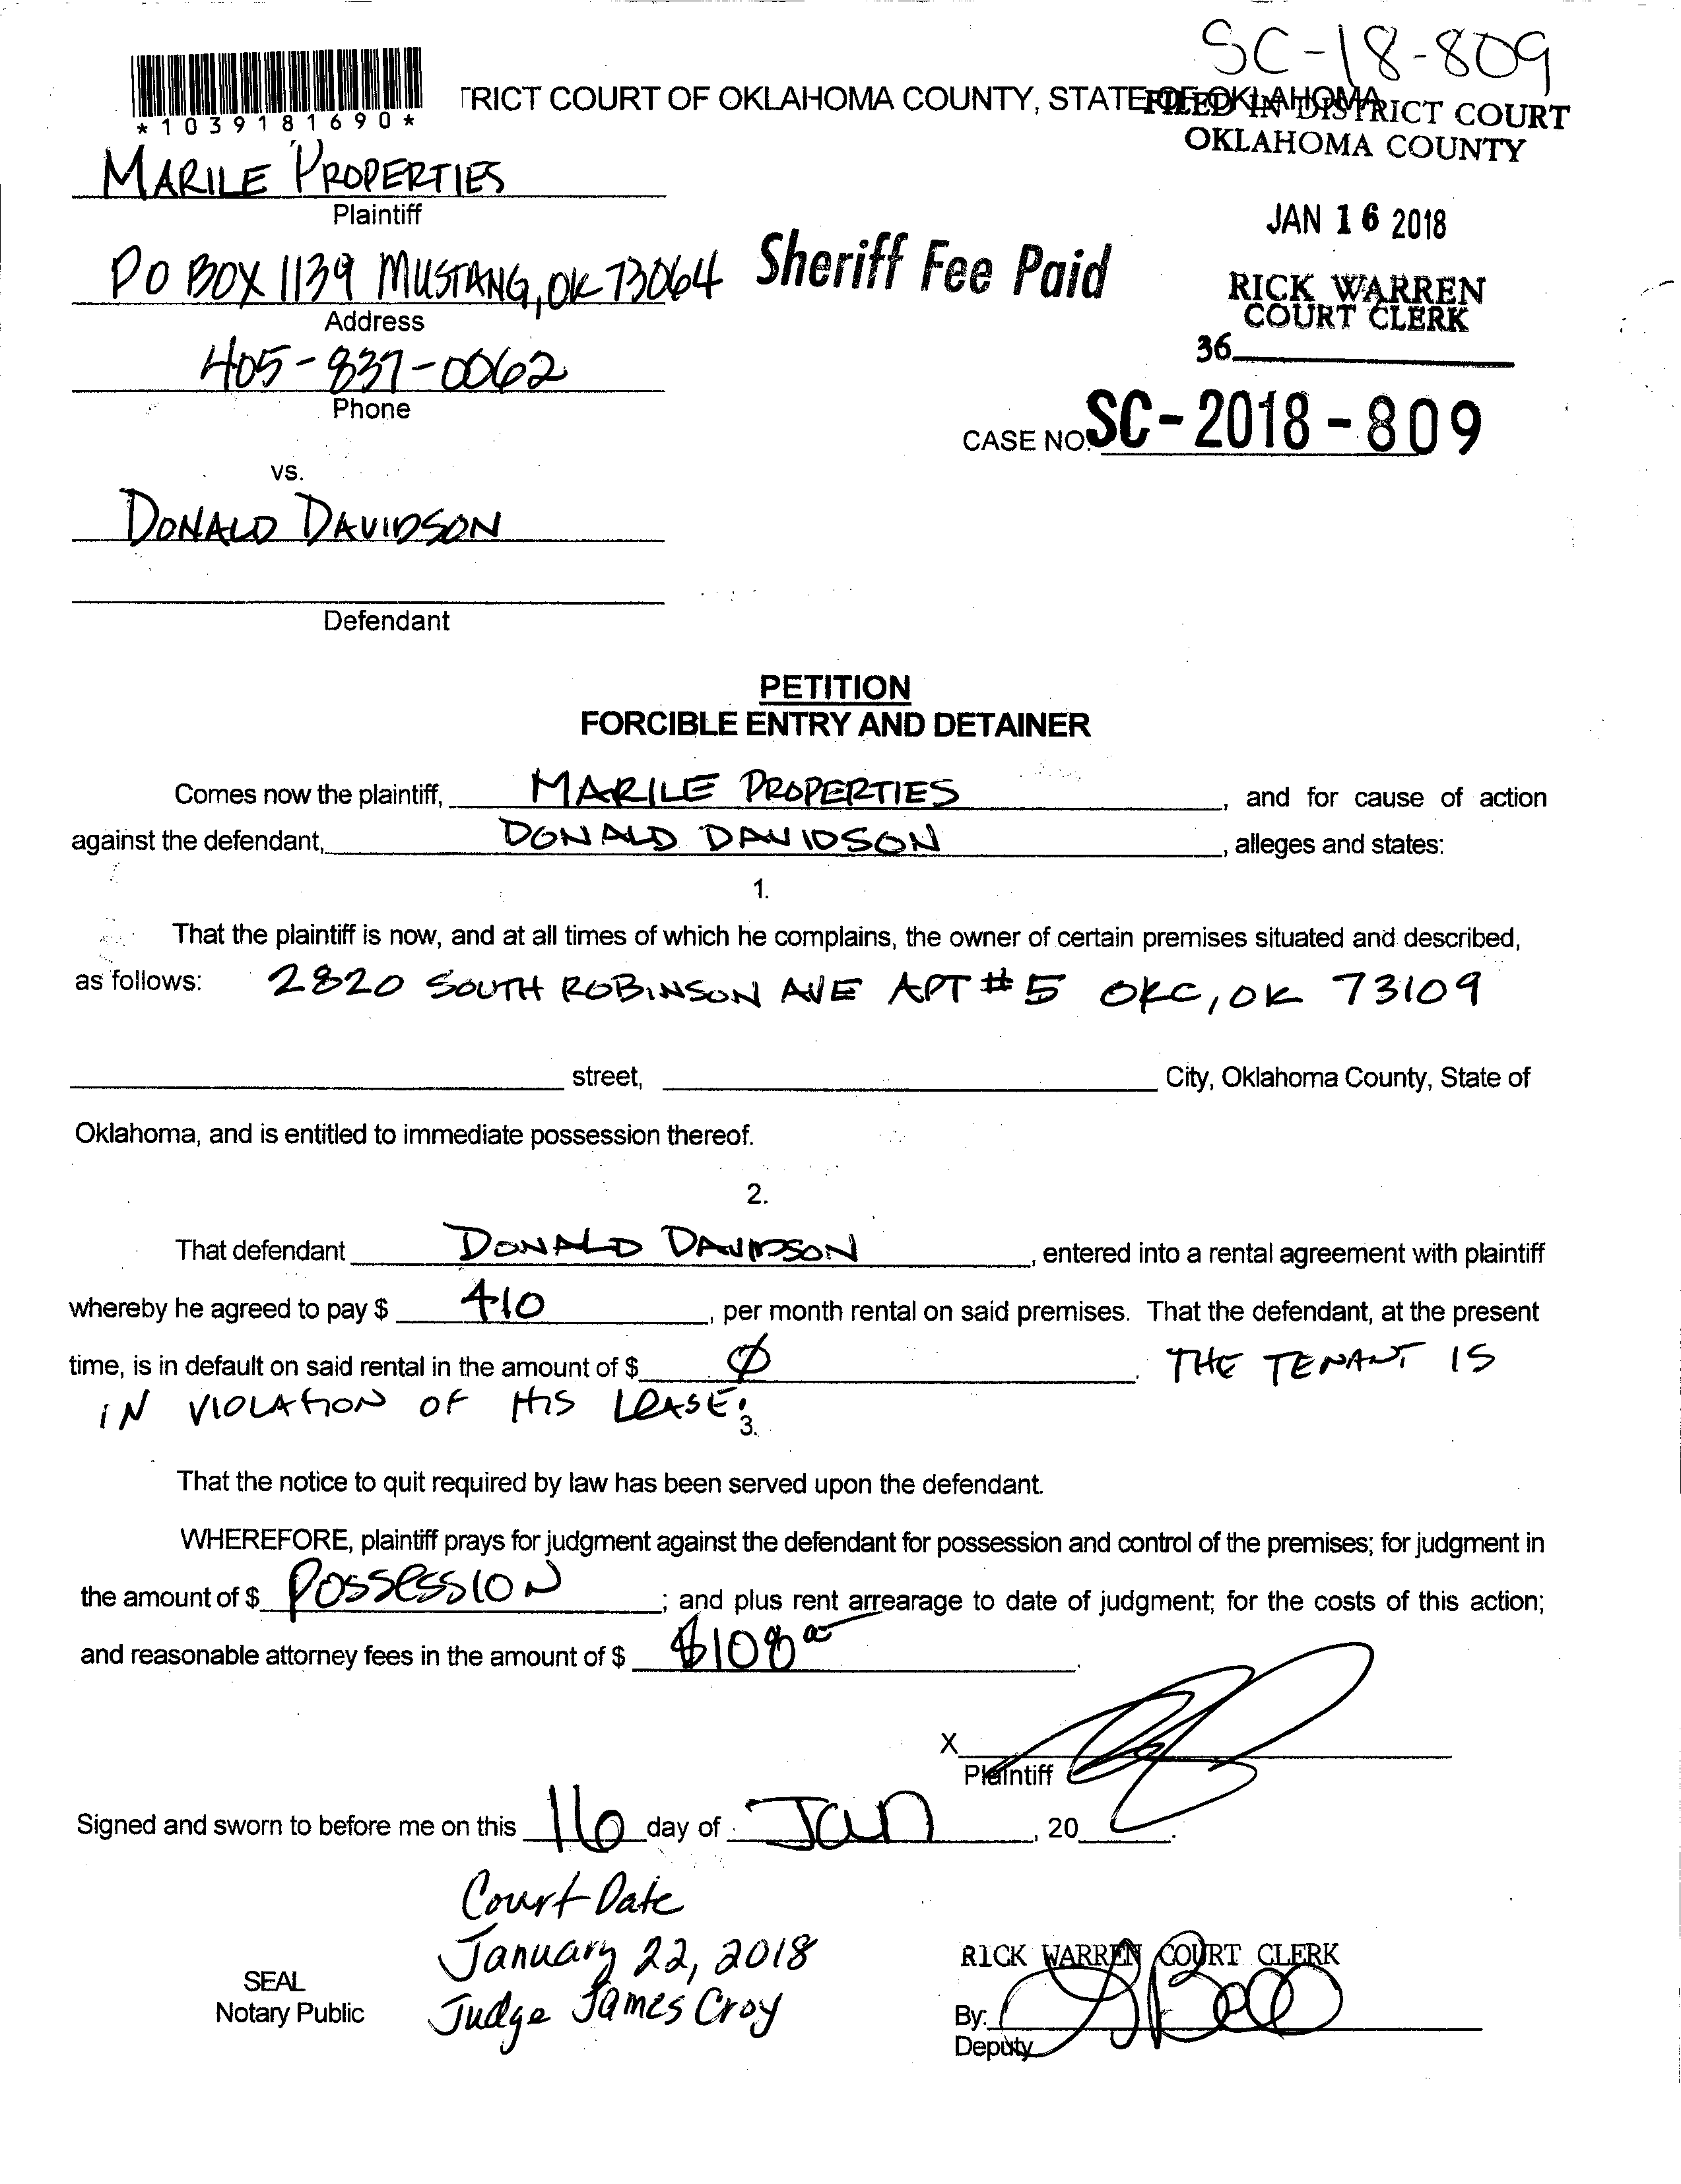 SC-18-809
*1039181690*
TRICT COURT OF OKLAHOMA COUNTY, STATE OF OKLAHOMA
FILED IN DISTRICT COURT
OKLAHOMA COUNTY
MARILE PROPERTIES
Plaintiff
JAN 16 2018
PO BOX 1139 MUSTANG, OK 73064
Sheriff Fee Paid
Address
RICK WARREN
COURT CLERK
36
405-837-0062
Phone
CASE NO. SC-2018-809
vs.
DONALD DAVIDSON
Defendant
PETITION
FORCIBLE ENTRY AND DETAINER
Comes now the plaintiff, MARILE PROPERTIES, and for cause of action
against the defendant, DONALD DAVIDSON, alleges and states:
1.
That the plaintiff is now, and at all times of which he complains, the owner of certain premises situated and described,
as follows: 2820 SOUTH ROBINSON AVE APT #5 OKC, OK 73109
street, City, Oklahoma County, State of
Oklahoma, and is entitled to immediate possession thereof.
2.
That defendant DONALD DAVIDSON, entered into a rental agreement with plaintiff
whereby he agreed to pay $ 410, per month rental on said premises. That the defendant, at the present
time, is in default on said rental in the amount of $ Ø. THE TENANT IS
IN VIOLATION OF HIS LEASE.
3.
That the notice to quit required by law has been served upon the defendant.
WHEREFORE, plaintiff prays for judgment against the defendant for possession and control of the premises; for judgment in
the amount of $ POSSESSION; and plus rent arrearage to date of judgment; for the costs of this action;
and reasonable attorney fees in the amount of $ $108 00.
X
Plaintiff
Signed and sworn to before me on this 16 day of Jan, 20.
Court Date
January 22, 2018
Judge James Croy
SEAL
Notary Public
RICK WARREN COURT CLERK
By:
Deputy